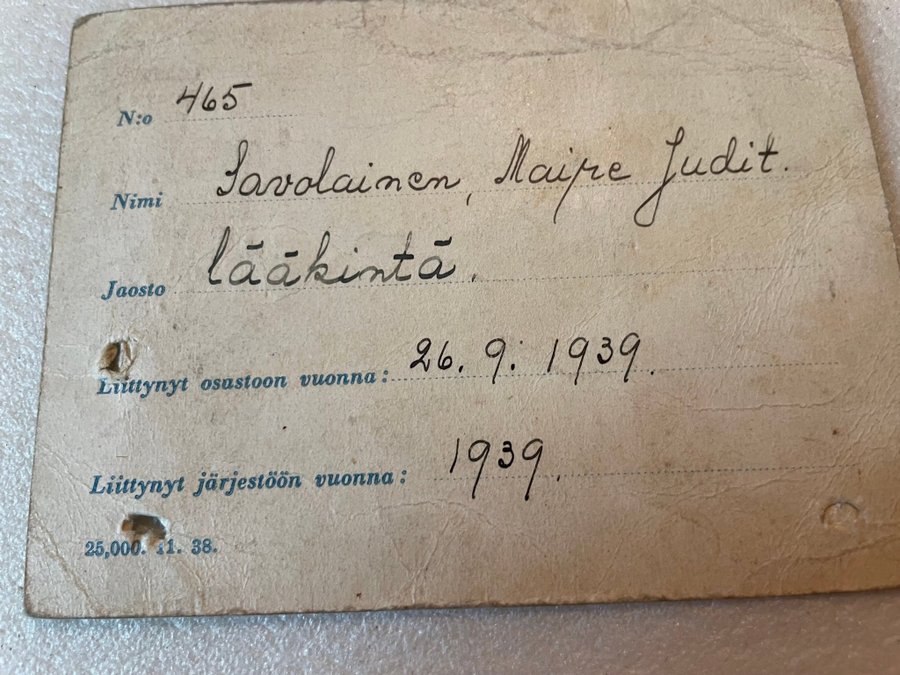 N:o 465
Nimi Savolainen, Maire Judit.
Jaosto lääkintä.
Liittynyt osastoon vuonna: 26. 9. 1939.
Liittynyt järjestöön vuonna: 1939.
25,000. 11. 38.